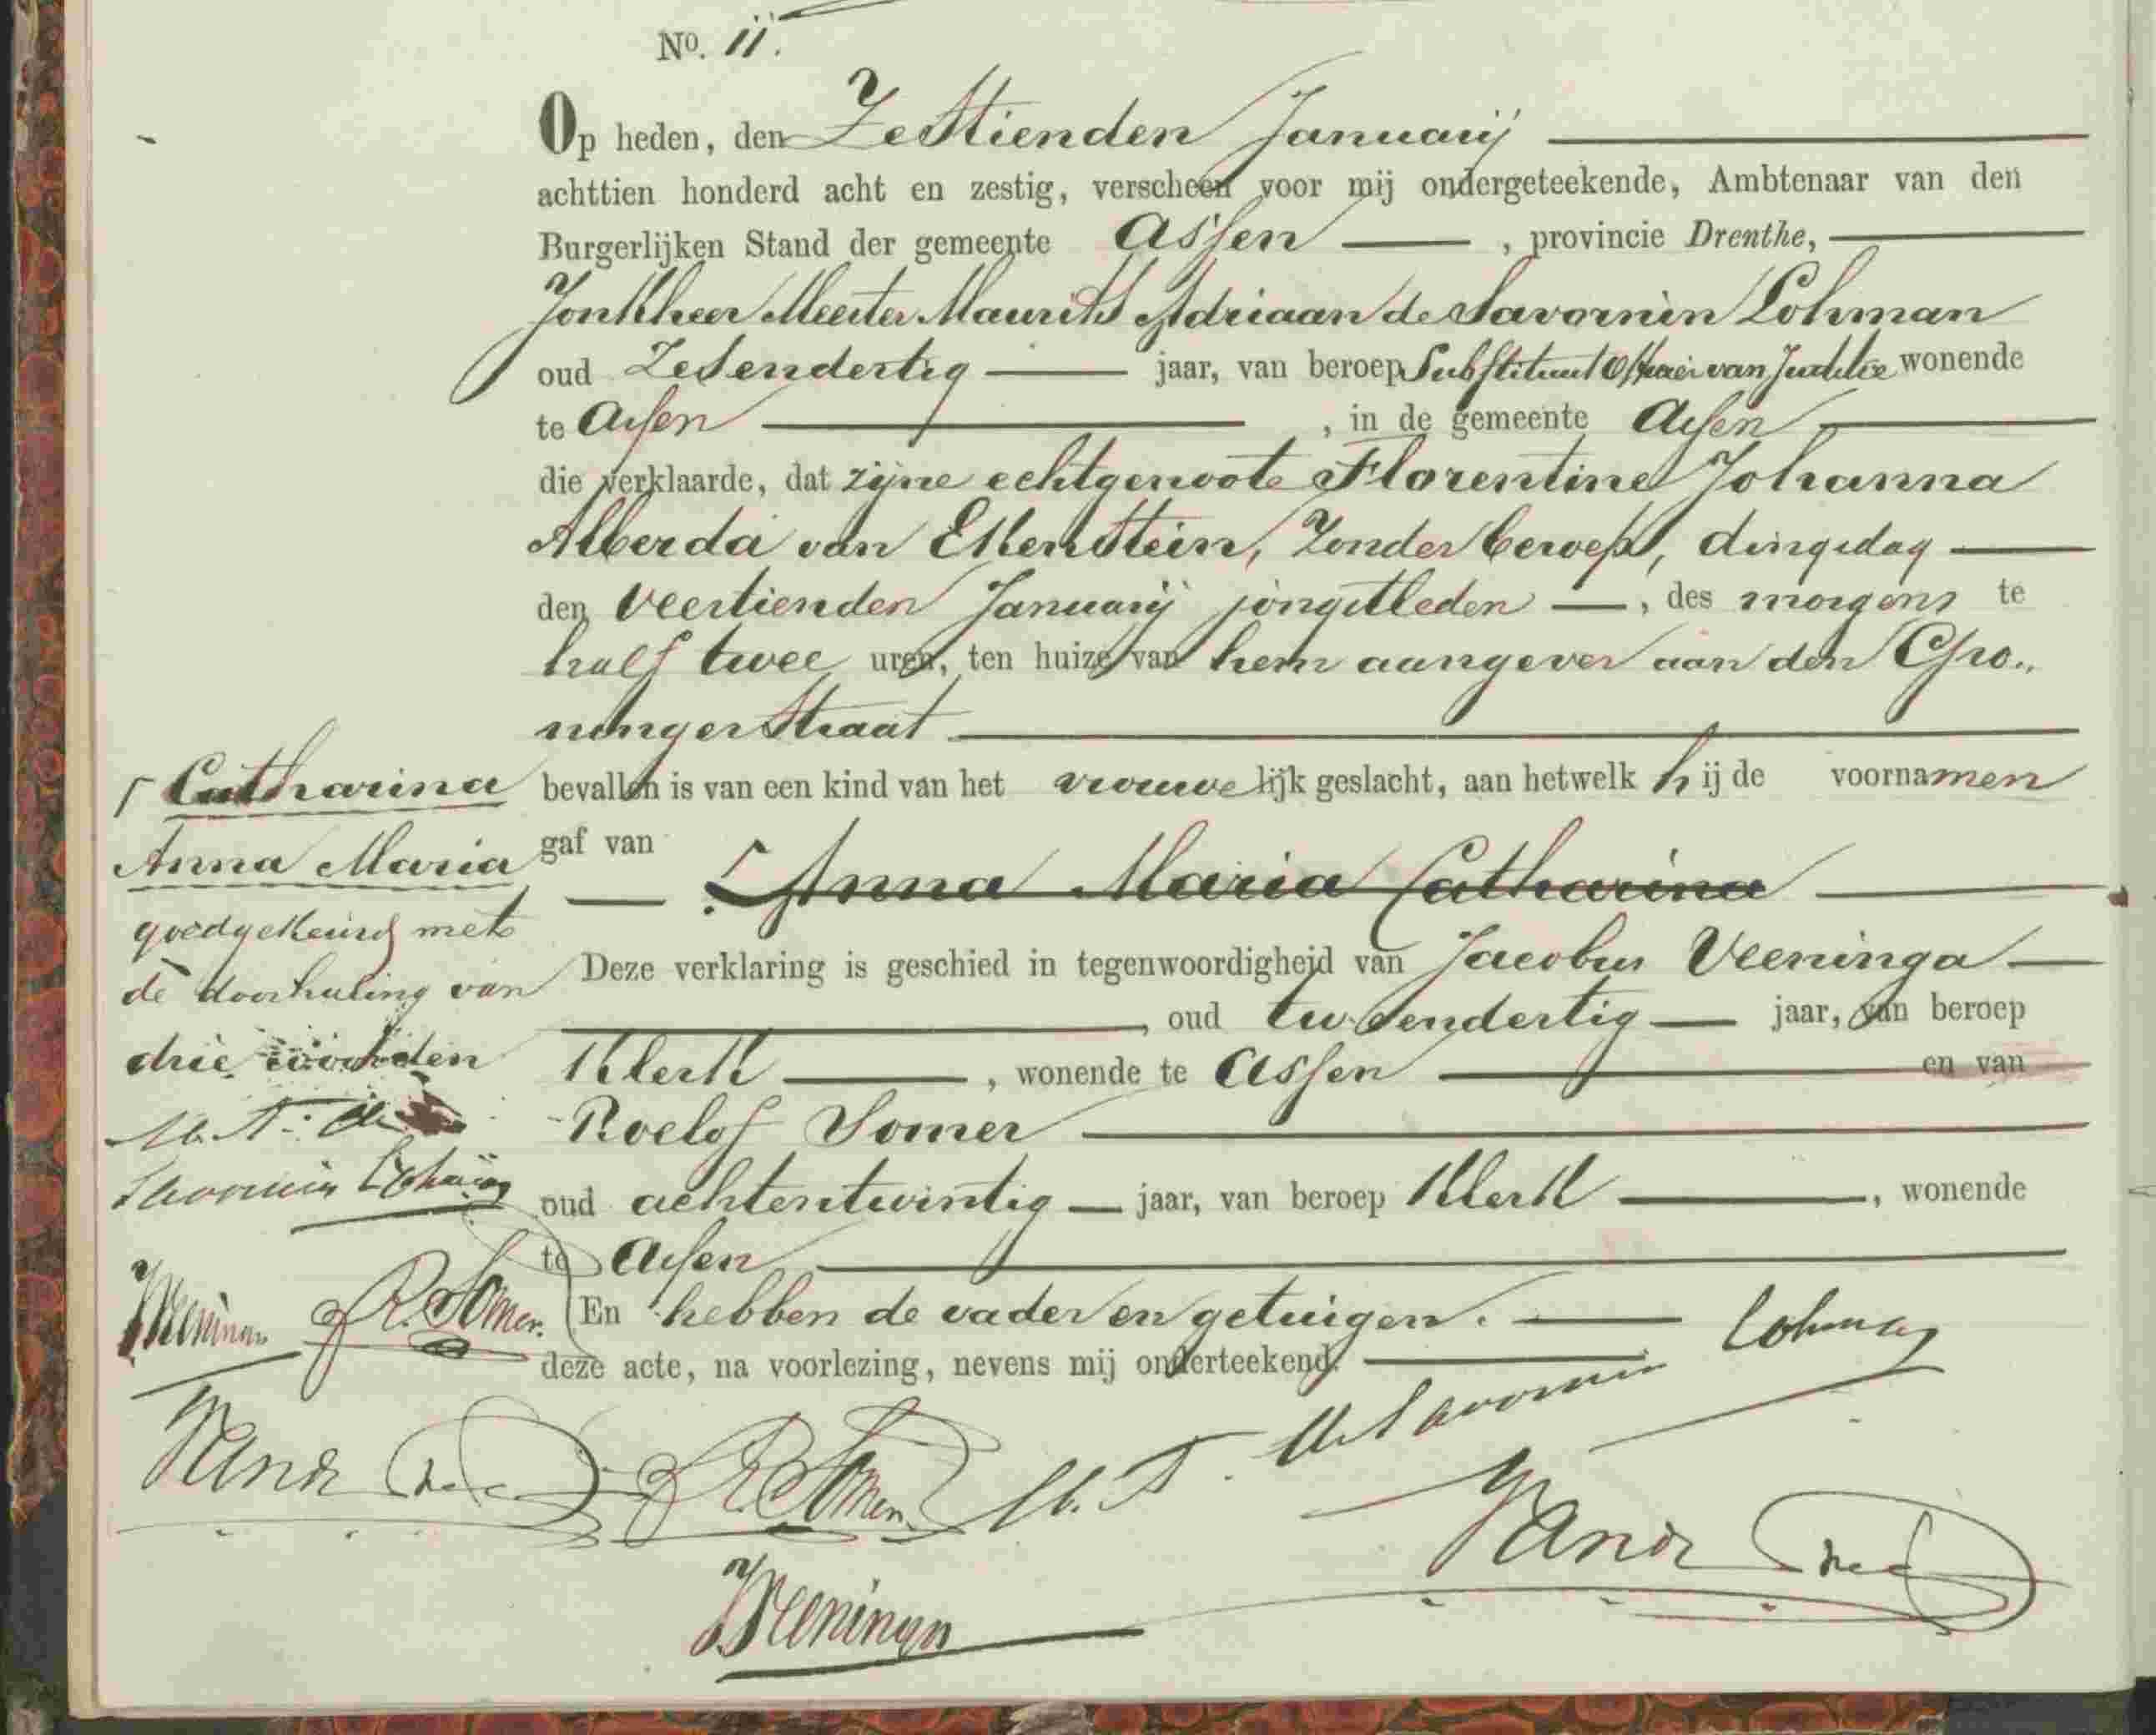 No. 11.
Op heden, den Zestienden Januarij
achttien honderd acht en zestig, verscheen voor mij ondergeteekende, Ambtenaar van den
Burgerlijken Stand der gemeente Assen, provincie Drenthe,
Jonkheer Meester Maurits Adriaan de Savornin Lohman
oud Zesendertig jaar, van beroep Substituut Officier van Justitie wonende
te Assen, in de gemeente Assen
die verklaarde, dat zijne echtgenoote Florentine Johanna
Alberda van Ekenstein, Zonder beroep, dingsdag
den Veertienden Januarij jongstleden, des morgens te
half twee uren, ten huize van hem aangever aan den Gro„
ningerstraat
bevallen is van een kind van het vrouwelijk geslacht, aan hetwelk hij de voornamen
gaf van
Anna Maria Catharina
Deze verklaring is geschied in tegenwoordigheid van Jacobus Veeninga
, oud tweeendertig jaar, van beroep
Klerk, wonende te Assen en van
Roelof Somer
oud achtentwintig jaar, van beroep Klerk, wonende
te Assen
En hebben de vader en getuigen.
deze acte, na voorlezing, nevens mij onderteekend.
Catharina
Anna Maria
goedgekeurd met
de doorhaling van
drie woorden
M. A. de
Savornin Lohman
JVeeninga R. Somer.
R. Somer M. A. de Savornin Lohman
JVeeninga